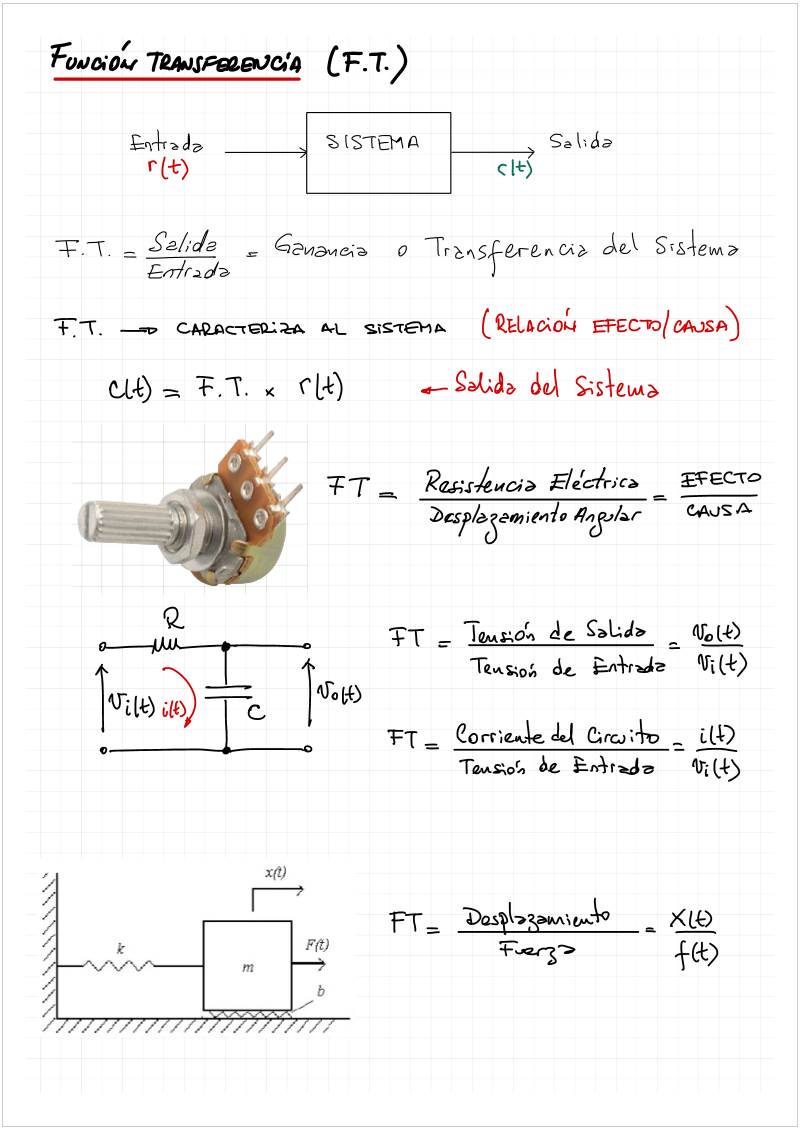 FUNCIÓN TRANSFERENCIA (F.T.)
Entrada
r(t)
SISTEMA
Salida
c(t)
F.T. = Salida / Entrada = Ganancia o Transferencia del Sistema
F.T. → CARACTERIZA AL SISTEMA (RELACIÓN EFECTO/CAUSA)
c(t) = F.T. × r(t) ← Salida del Sistema
FT = Resistencia Eléctrica / Desplazamiento Angular = EFECTO / CAUSA
R
Vi(t)
i(t)
C
Vo(t)
FT = Tensión de Salida / Tensión de Entrada = Vo(t) / Vi(t)
FT = Corriente del Circuito / Tensión de Entrada = i(t) / Vi(t)
x(t)
k
m
F(t)
b
FT = Desplazamiento / Fuerza = X(t) / f(t)